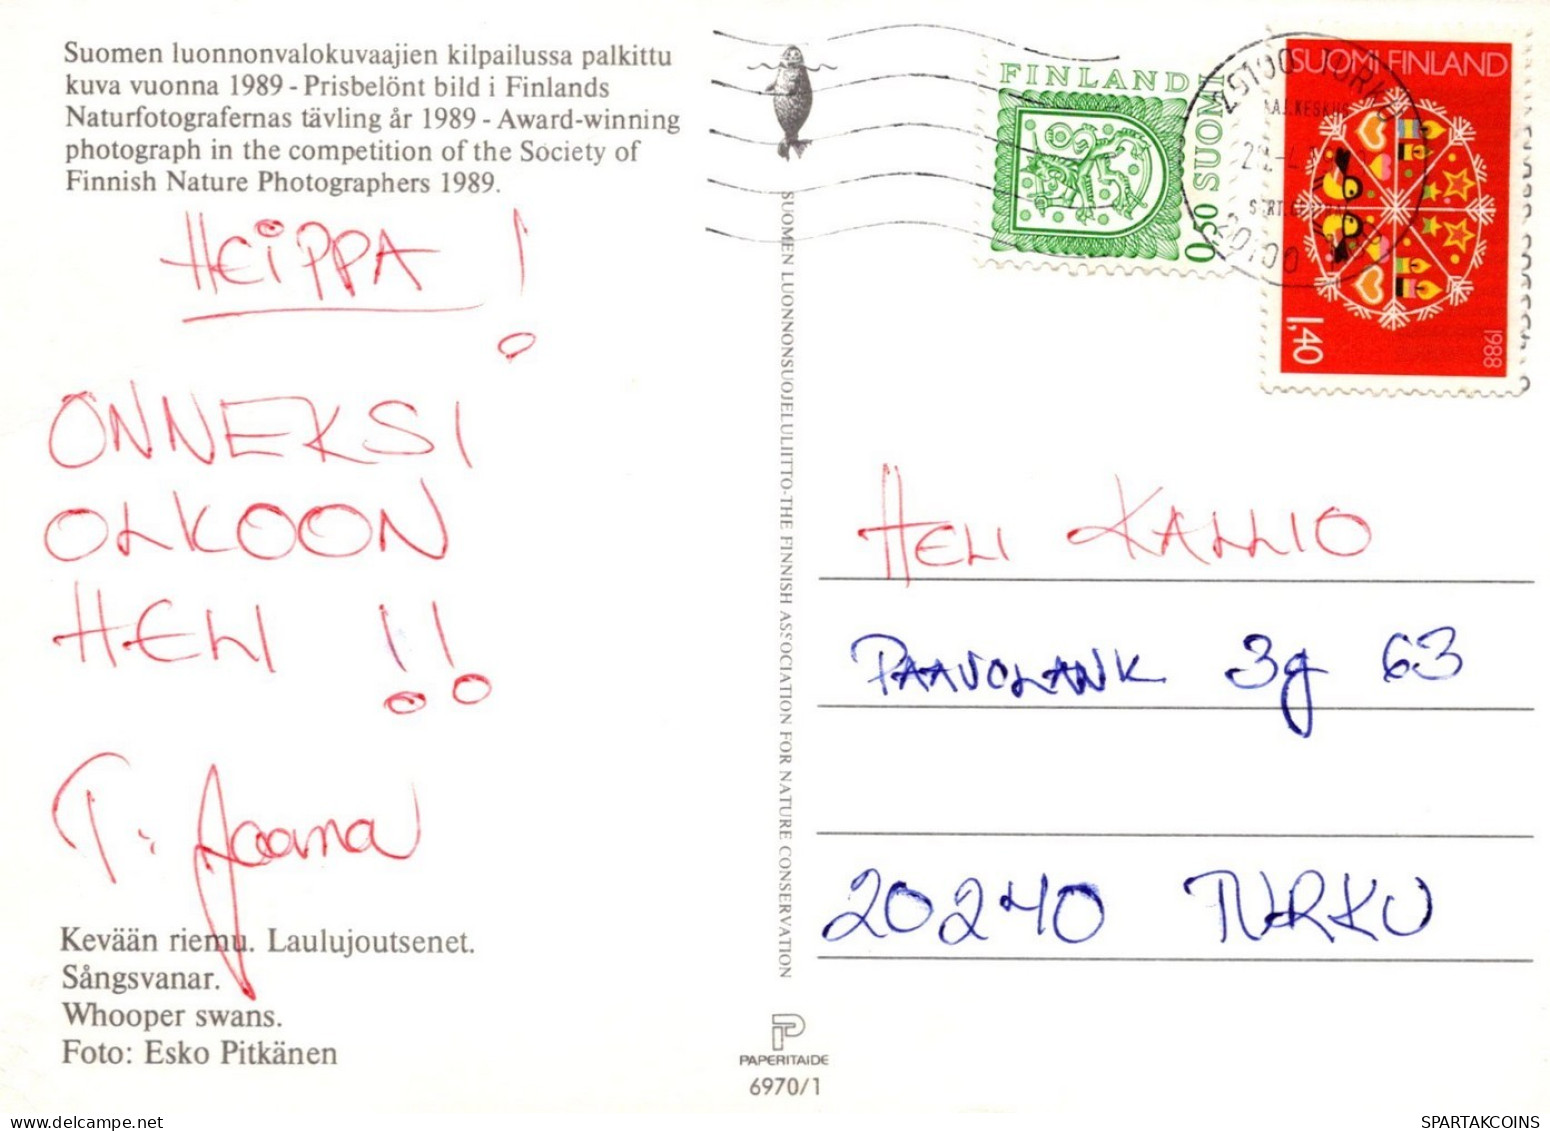 Suomen luonnonvalokuvaajien kilpailussa palkittu
kuva vuonna 1989 - Prisbelönt bild i Finlands
Naturfotografernas tävling år 1989 - Award-winning
photograph in the competition of the Society of
Finnish Nature Photographers 1989.
HEIPPA!
ONNEKSI
OLKOON
HELI !!
T: Jaana
Kevään riemu. Laulujoutsenet.
Sångsvanar.
Whooper swans.
Foto: Esko Pitkänen
SUOMEN LUONNONSUOJELULIITTO-THE FINNISH ASSOCIATION FOR NATURE CONSERVATION
PAPERITAIDE
6970/1
FINLAND
SUOMI
0,50
20100 TURKU
20100
SUOMI FINLAND
1,40
1988
HELI KALLIO
PAAVOLANK 3g 63
20240 TURKU
SPARTAKCOINS